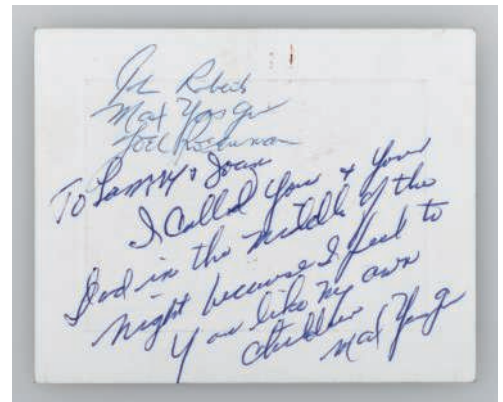 John Roberts
Max Yasgur
Joel Rosenman
To Lammy & Joan
I Called you & your
Dad in the middle of the
night because I feel to
you like my own
children
Max Yasgur